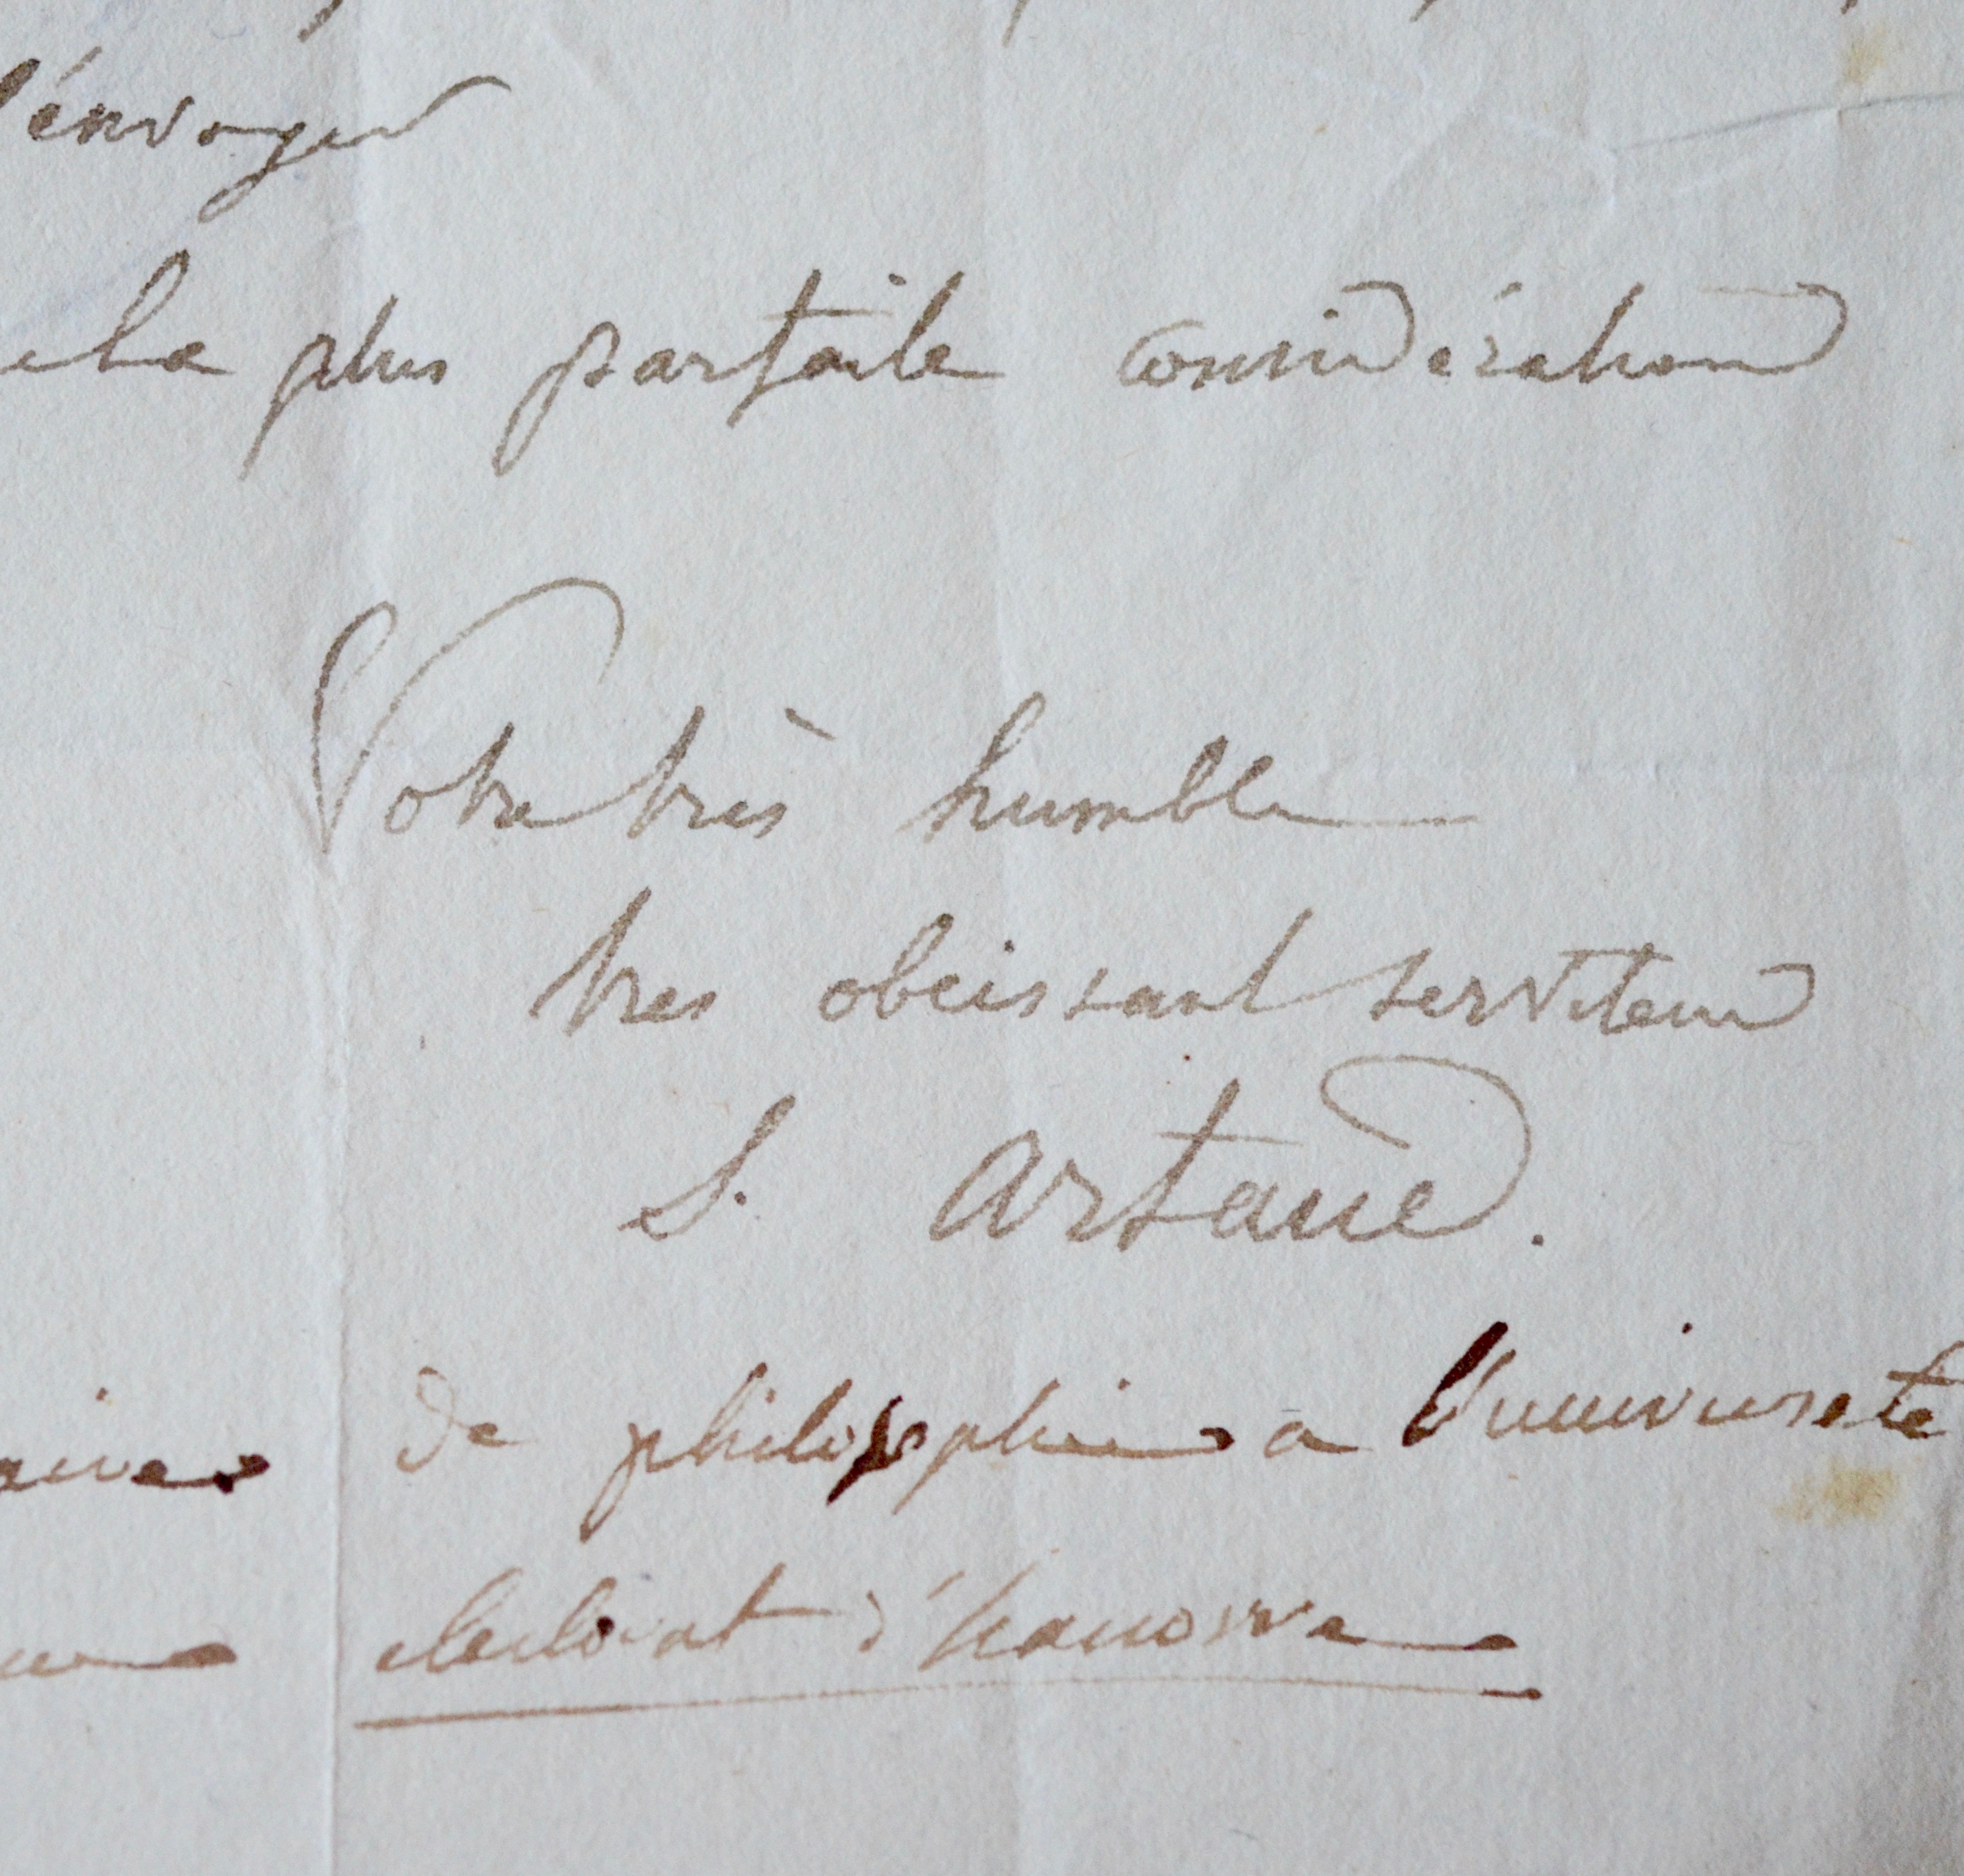 l'envoyer
la plus parfaite considération
Votre très humble
tres obeissant serviteur
S. Artaud.
de philosophie a l'université
electorat d'hanovre